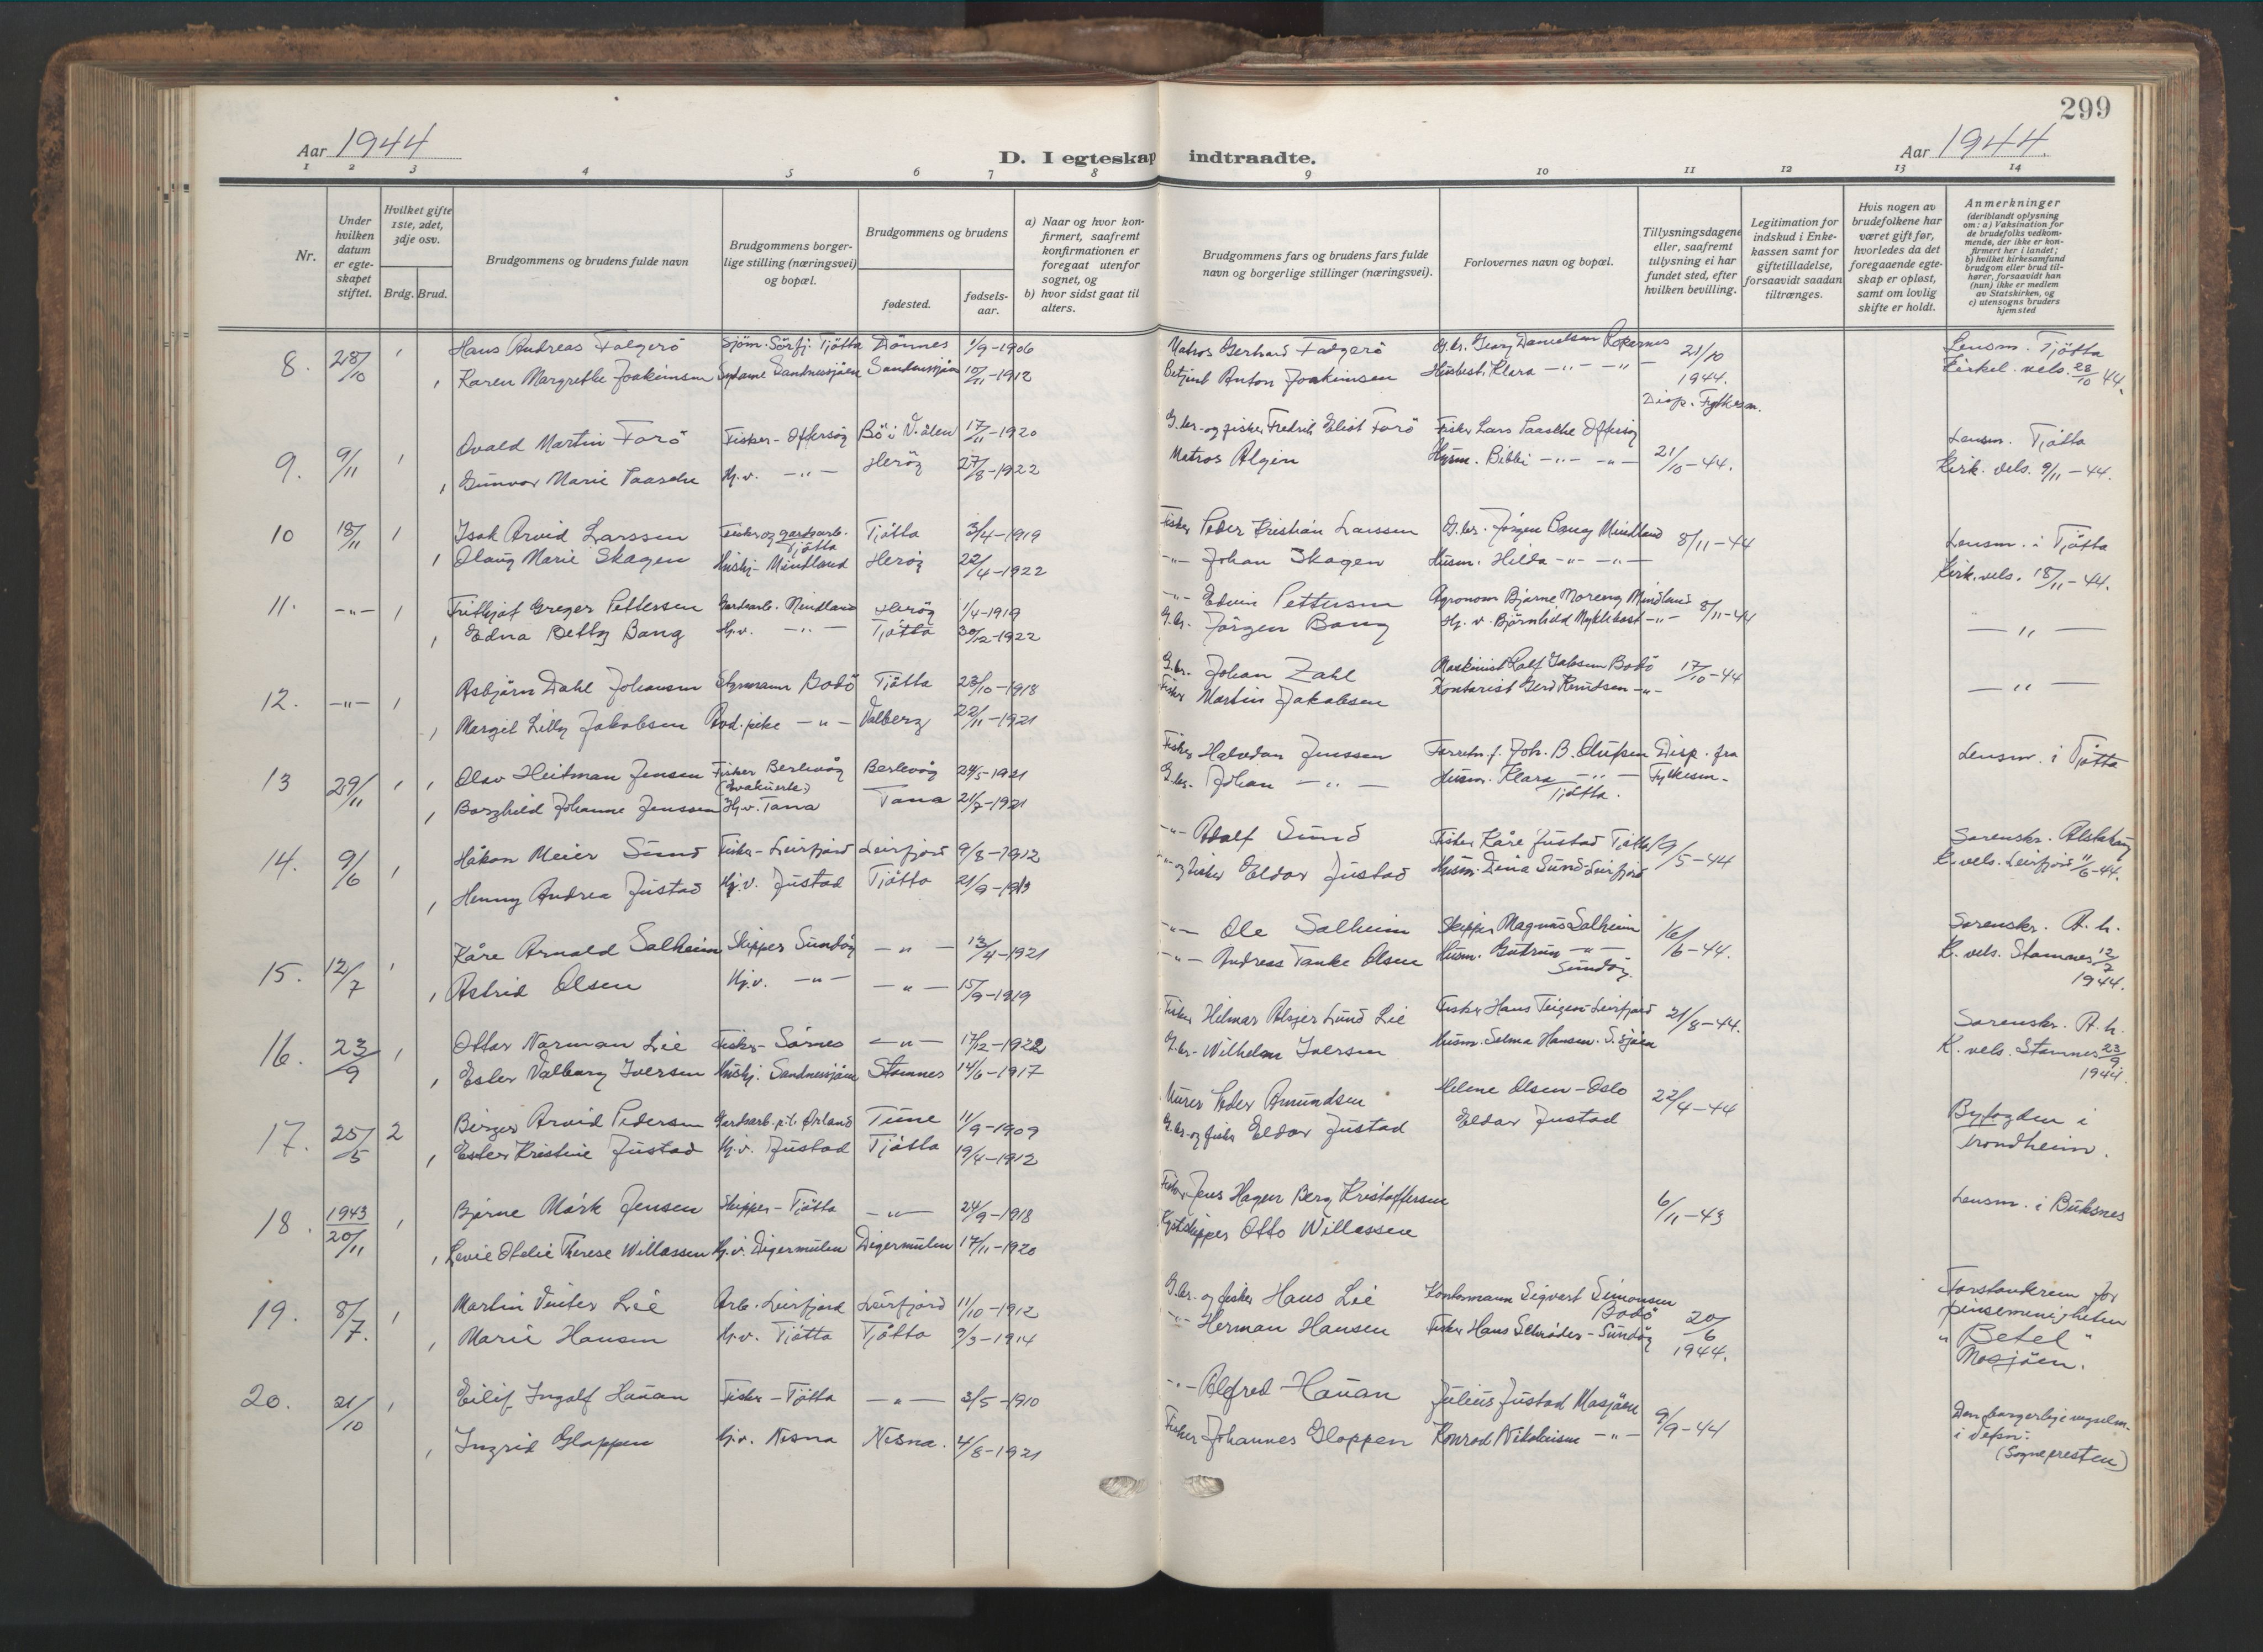 299
Aar 1944
D. I egteskap indtraadte.
Aar 1944
1 2 3 4 5 6 7 8 9 10 11 12 13 14
Nr.
Under hvilken datum er egteskapet stiftet.
Hvilket gifte 1ste, 2det, 3dje osv.
Brdg. Brud.
Brudgommens og brudens fulde navn
Brudgommens borgerlige stilling (næringsvei) og bopæl.
Brudgommens og brudens
fødested.
fødselsaar.
a) Naar og hvor konfirmert, saafremt konfirmationen er foregaat utenfor sognet, og
b) hvor sidst gaat til alters.
Brudgommens fars og brudens fars fulde navn og borgerlige stillinger (næringsvei).
Forlovernes navn og bopæl.
Tillysningsdagene eller, saafremt tillysning ei har fundet sted, efter hvilken bevilling.
Legitimation for indskud i Enkekassen samt for giftetilladelse, forsaavidt saadan tiltrænges.
Hvis nogen av brudefolkene har været gift før, hvorledes da det foregaaende egteskap er opløst, samt om lovlig skifte er holdt.
Anmerkninger
(deriblandt oplysning om: a) Vaksination for de brudefolks vedkommende, der ikke er konfirmert her i landet; b) hvilket kirkesamfund brudgom eller brud tilhører, forsaavidt han (hun) ikke er medlem av Statskirken, og c) utensogns bruders hjemsted
8. 28/10 1 Hans Andreas Falgerö Sjöm. Sörfj. Tjötta Dönnes 1/9-1906 Matros Gerhard Falgerö G.br. Georg Danielsen Rökernes 21/10 Lensm. Tjötta
1 Karen Margrethe Joakimsen Sydame Sandnessjöen Sandnessjöen 10/11-1912 Betjent Anton Joakimsen Husbest. Klara -"- -"- 1944. Kirkel. vels. 28/10 44.
Disp. Fylkesm.
9. 9/11 1 Ovald Martin Forö Fisker - Offersöy Bö i V.ålen 17/11-1920 G.br.-og fisker Fredrik Eliot Forö Fisker Lars Paasche Offersöy Lensm. Tjötta
1 Gunvor Marie Paasche Hj.v. -"- Heröy 27/8-1922 Matros Algin Husm. Bibbi -"- -"- 21/10-44. Kirk. vels. 9/11-44.
10 18/11 1 Isak Arvid Larssen Fisker og gardsarb. Tjötta Tjötta 3/4-1919 Fisker Peder Kristian Larssen G.br. Jörgen Bang Mindland 8/11-44 Lensm. i Tjötta
1 Olaug Marie Skagen Hushj. Mindland Heröy 22/4-1922 -"- Johan Skagen Husm. Hilda -"- -"- Kirk. vels. 18/11-44.
11. -"- 1 Fritkjof Greger Pettersen Gardsarb. Mindland Heröy 1/4-1919 -"- Edvin Pettersen Agronom Bjarne Moreng Mindland 8/11-44
1 Edna Betty Bang Hj.v. -"- Tjötta 30/12-1922 G.br. Jörgen Bang Hj.v. Björnhild Myklebost -"- -"-
12. -"- 1 Asbjörn Dahl Johansen Styrmann Bodö Tjötta 23/10-1918 G.br. Johan Zahl Maskinist Ralf Jakobsen Bodö 17/10-44
1 Margit Lilly Jakobsen Bod.pike -"- Valberg 22/11-1921 Fisker Martin Jakobsen Kontorist Gerd Knudsen -"- -"-
13 29/11 1 1 Olav Heitman Jensen Fisker Berlevåg (Evakuerte) Berlevåg 24/5-1921 Fisker Halvdan Jenssen Forretn.f. Joh. B. Olufsen Disp. fra Lensm. i Tjötta
1 Borghild Johanne Jenssen Hj.v. Tana Tana 21/7-1921 G.br. Johan -"- Husm. Klara -"- Tjötta. Fylkesm.
14. 9/6 1 Håkon Meier Sund Fisker - Leirfjord Leirfjord 9/8-1912 -"- Adolf Sund Fisker Kåre Justad Tjötta 19/5-44 Sorenskr. Alstahaug
1 Henny Andrea Justad Hj.v. Justad Tjötta 21/9-1913 -"- og fisker Eldar Justad Husm. Dina Sund Leirfjord K. vels. Leirfjord 11/6-44.
15. 12/7 1 Kåre Arnold Salheim Skipper Sundöy -"- 13/4-1921 -"- Ole Salheim Skipper Magnus Salheim 16/6-44. Sorenskr. A.h.
1 Astrid Olsen Hj.v. -"- -"- 15/9-1919 -"- Andreas Tanke Olsen Husm. Gudrun -"- Sundöy. K. vels. Stamnes 12/7 1944.
16. 23/9 1 Ottar Norman Lie Fisker - Sörnes -"- 17/12-1922 Fisker Hilmar Alsjer Lund Lie Fisker Hans Teigen Leirfjord 21/8-44. Sorenskr. A.h.
1 Ester Valborg Iversen Hushj. Sandnessjöen Stamnes 14/6-1917 G.br. Wilhelm Iversen Husm. Selma Hansen. S.sjöen K. vels. Stamnes 23/9 1944.
17. 25/5 2 Birger Arvid Pedersen Gardsarb. p.t. Örland Tune 11/9-1909 Murer Peder Amundsen Helene Olsen - Oslo 22/4-44 Byfogden i
1 Ester Kristine Justad Hj.v. Justad Tjötta 19/4-1912 G.br. og fisker Eldar Justad Eldar Justad Trondheim.
18. 1943 20/11 1 Bjarne Mørk Jensen Skipper - Tjötta -"- 24/9-1918 Fisker Jens Hagen Berg Kristoffersen 6/11-43 Lensm. i Buksnes
1 Levie Otelie Therese Willassen Hj.v. Digermulen Digermulen 17/11-1920 Otto Willassen
19. 8/7. 1 Martin Vinter Lie Arb. Leirfjord Leirfjord 11/10-1912 G.br. og fisker Hans Lie Kontormann Sigvart Simonsen Bodö 20/6 1944. Forstanderen for pinsemenigheten
1 Marie Hansen Hj.v. Tjötta Tjötta 9/3-1914 -"- Herman Hansen Fisker Hans Schröder - Sundöy "Betel" Mosjöen.
20. 21/10 1 Eilif Ingolf Hauan Fisker - Tjötta -"- 3/5-1910 -"- Alfred Hauan Julius Justad Mosjöen 9/9-44 Den borgerlige vigselsm. i Vefsn.
1 Ingrid Gloppen Hj.v. Nesna Nesna. 4/8-1921 Fisker Johannes Gloppen Konrad Nikolaisen -"- (Sognepresten)